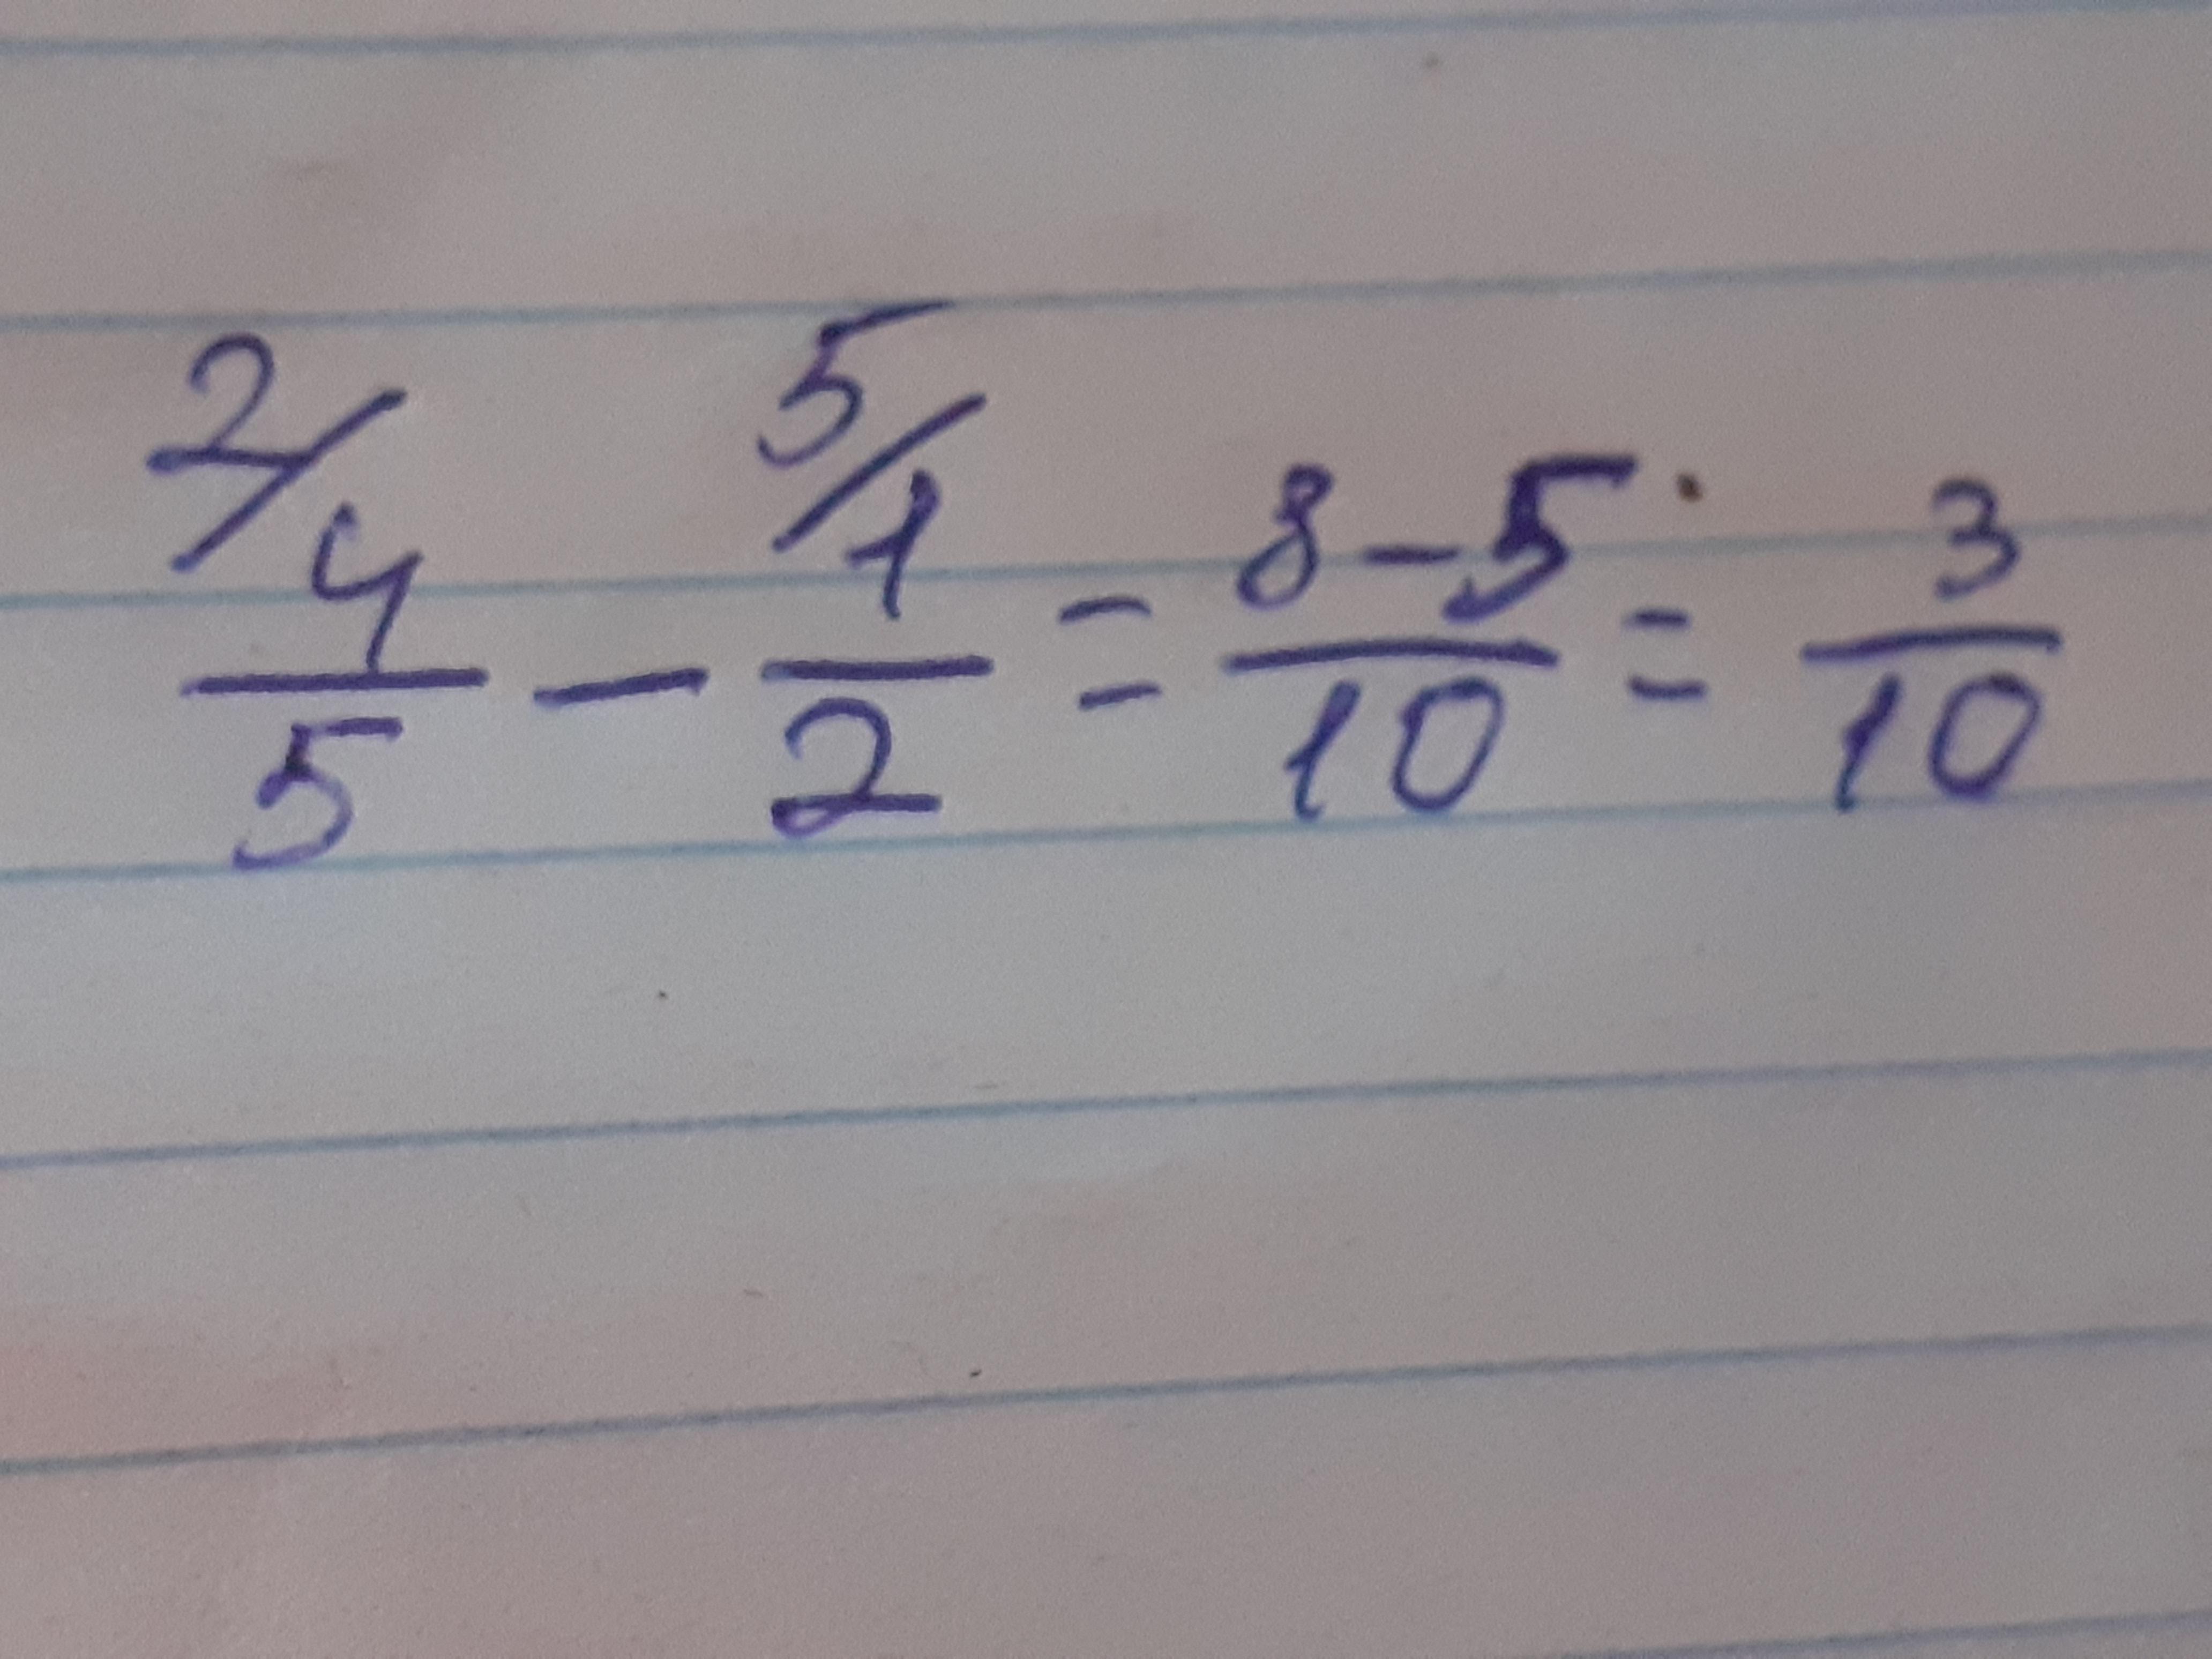 2/ 4/5 - 5/ 1/2 = 8-5/10 = 3/10